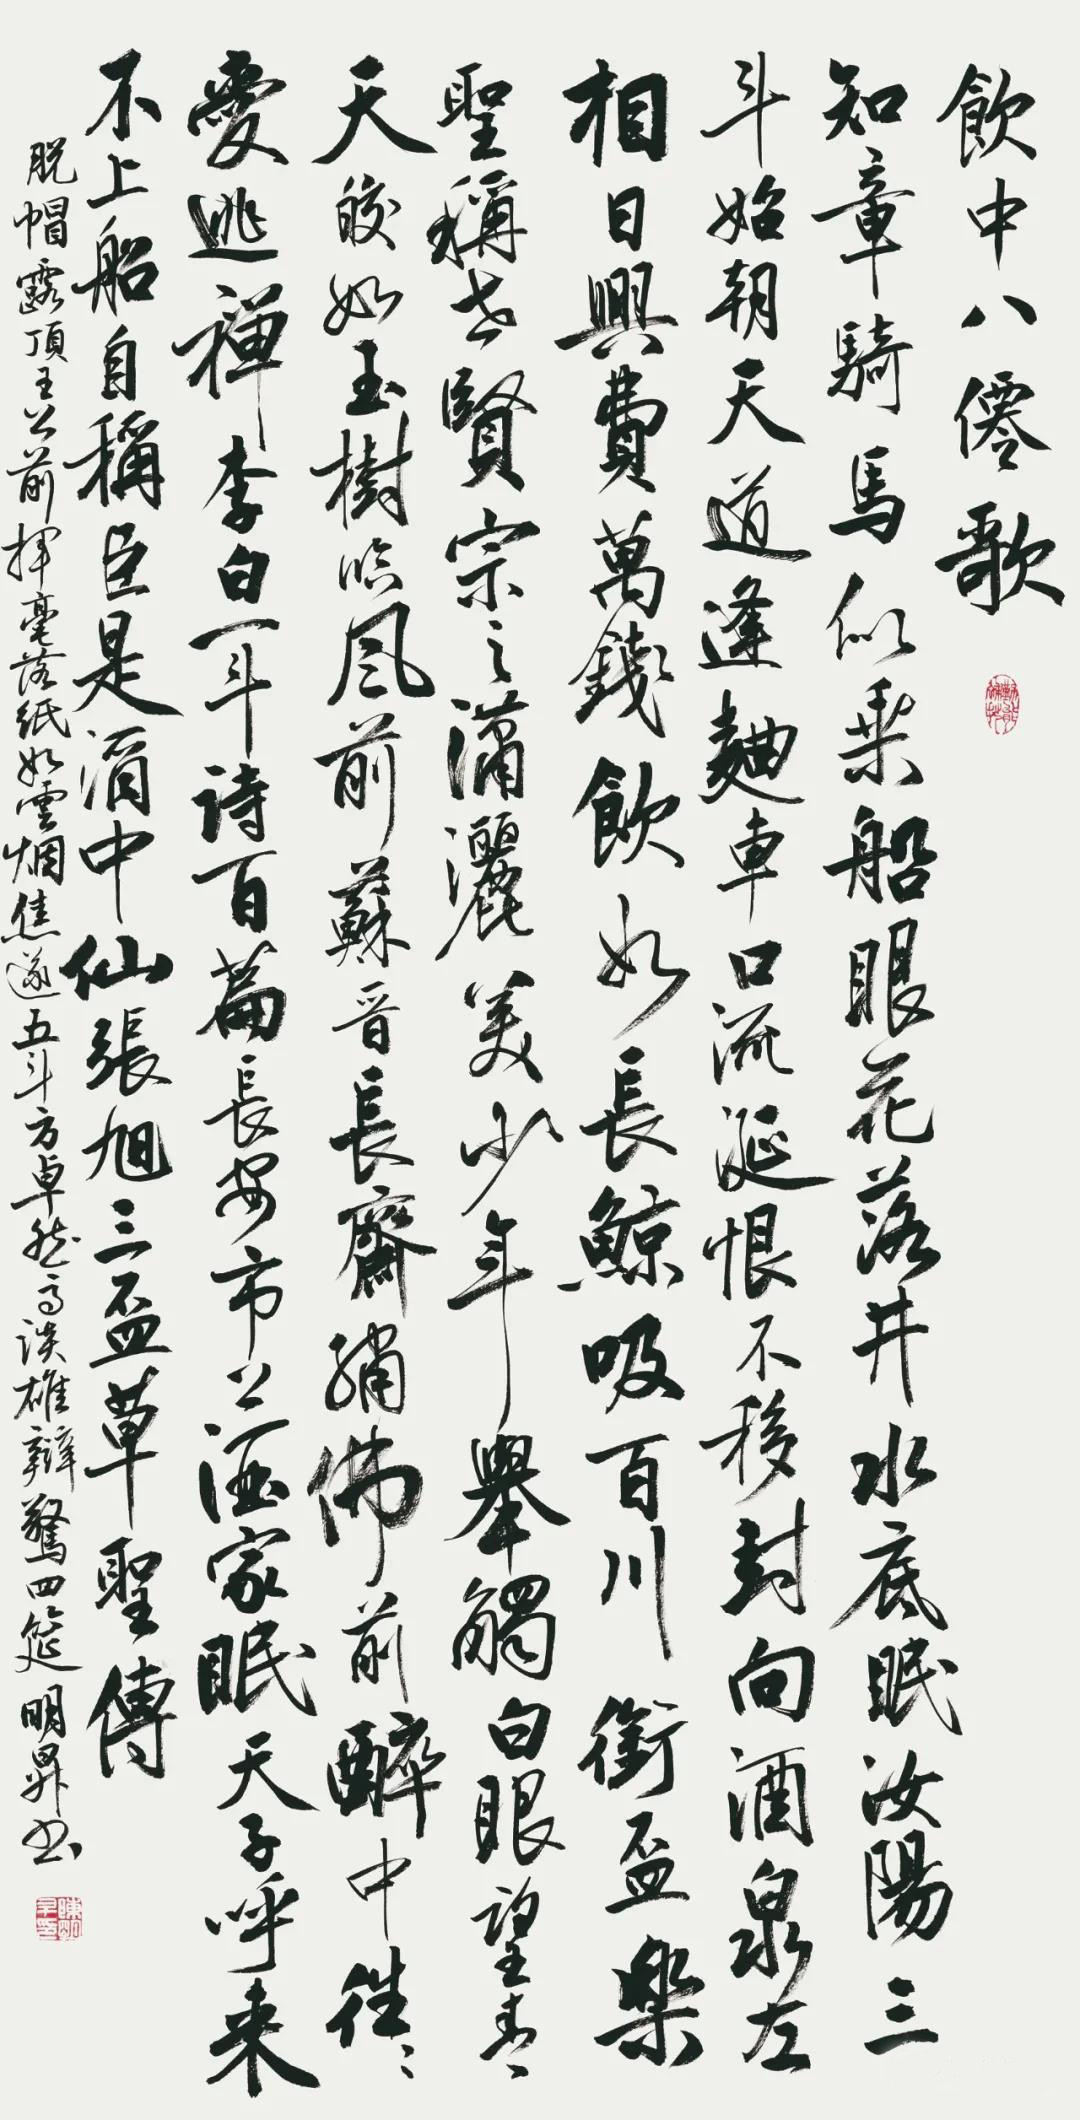 飲中八僊歌
知章騎馬似乗船眼花落井水底眠汝陽三
斗始朝天道逢麯車口流涎恨不移封向酒泉左
相日興費萬錢飲如長鯨吸百川銜盃樂
聖稱世賢宗之瀟灑美少年舉觴白眼望青
天皎如玉樹臨風前蘇晋長齋繡佛前醉中往〻
愛逃禅李白一斗詩百篇長安市上酒家眠天子呼来
不上船自稱臣是酒中仙張旭三盃草聖傳
脱帽露頂王公前揮毫落紙如雲烟焦遂五斗方卓然高談雄辯驚四筵明昇书